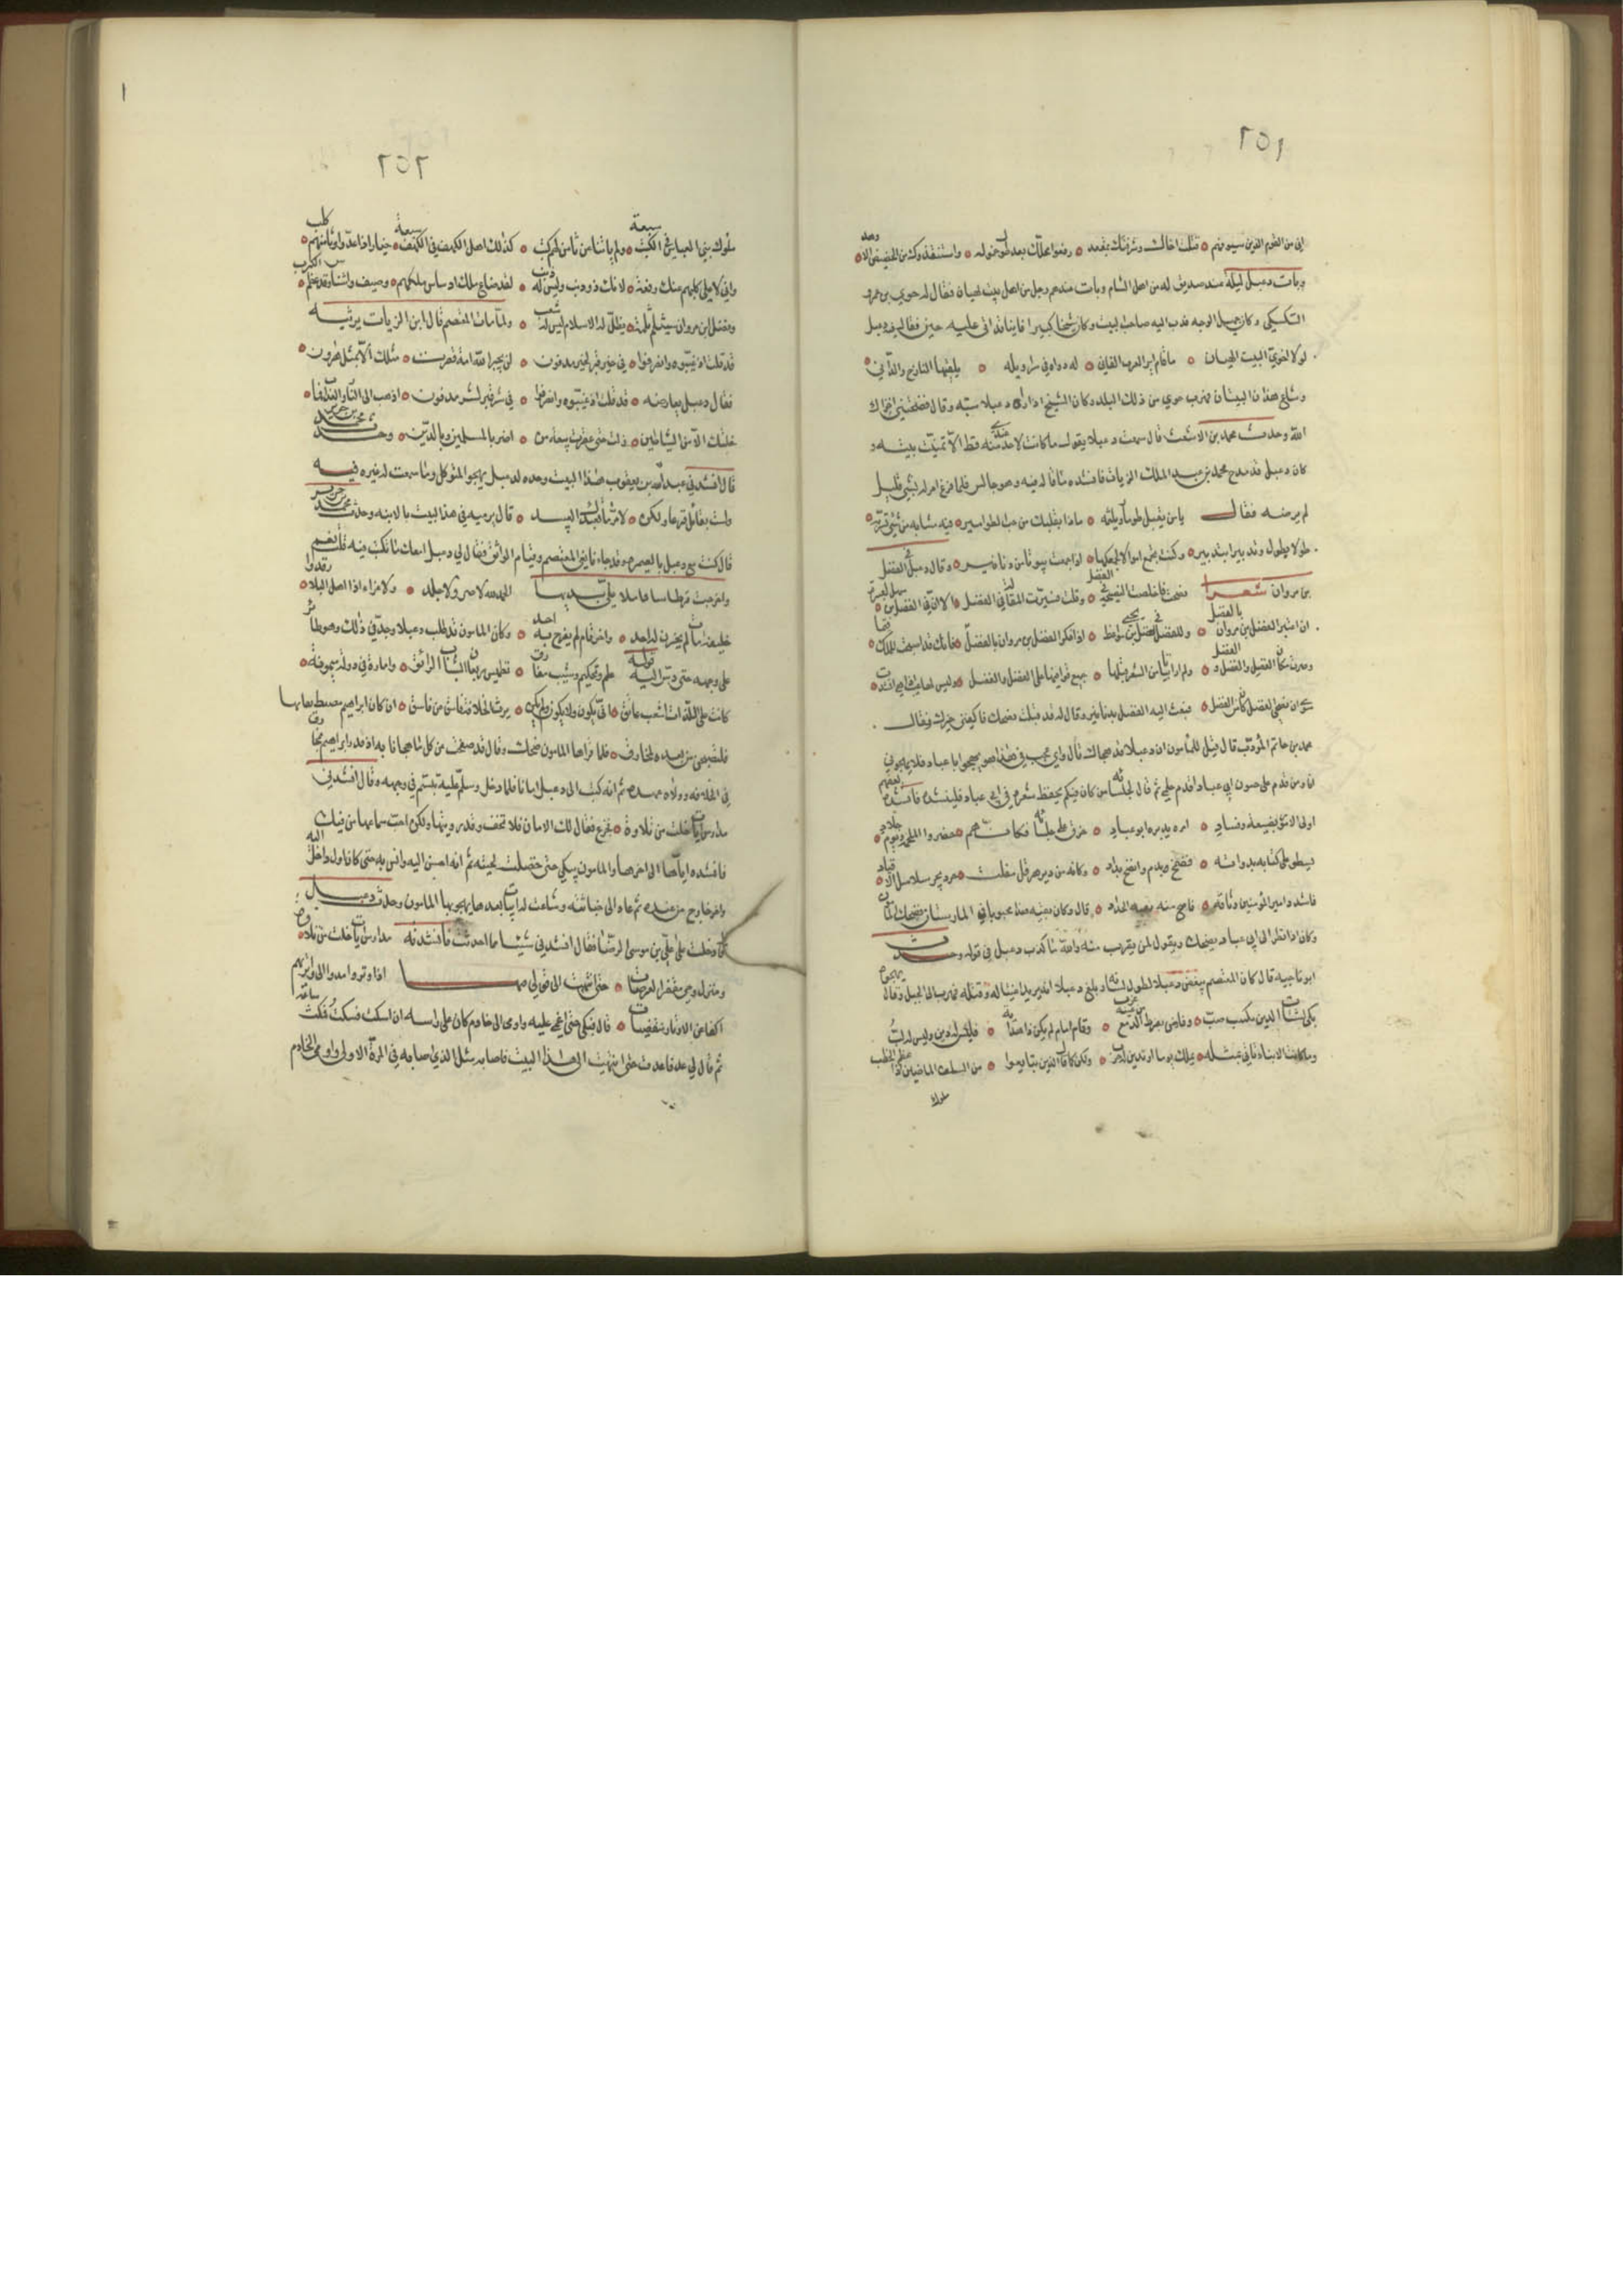 ٢٥١
اني من القوم الذين سيوفهم ۝ قتلت اخاك وشرفتك بمقعد ۝ رفعوا محلك بعد طول خموله ۝ واستنقذوك من الحضيض الاوهد
وبات دعبل ليلة عند صديق له من اهل الشام وبات عندهم رجل من اهل بيت لهيان فقال له حوي بن عمرو
السكسكي وكان جميل الوجه فدب اليه صاحب البيت وكان شيخا كبيرا فانيا قد اتى عليه حين فقال فيه دعبل
لولا حوي لبيت لهيان ۝ ما قام اير العزب الفاني ۝ له دواة في سراويله ۝ يليقها النازح والداني
وشاع هذان البيتان فهرب حوي من ذلك البلد وكان الشيخ اذا راى دعبلا سبه وقال فضحتني اخزاك
الله وحدث محمد بن الاشعث قال سمعت دعبلا يقول ما كانت لاحد قط عندي منة الا تمنيت موته و
كان دعبل قد مدح محمد بن عبد الملك الزيات فانشده ما قاله فيه وهو جالس فلما فرغ امر له بشي قليل
لم يرضه فقال يا من يقلب طومارا ويلثمه ۝ ماذا بقلبك من حب الطوامير ۝ فيه مشابه من شي تسر به
طولا بطول وتدويرا بتدوير ۝ لو كنت تجمع اموالا كجمعكها ۝ اذا جمعت بيوتا من دنانير ۝ وقال دعبل في الفضل
بن مروان شعرا نصحت فاخلصت النصيحة للفضل ۝ وقلت فسيرت المقالة في الفضل ۝ الا ان في الفضل بن سهل لعبرة
ان اعتبر الفضل بن مروان بالفضل ۝ وللفضل في الفضل بن يحيى مواعظ ۝ اذا فكر الفضل بن مروان بالفضل ۝ فانك قد اصبحت للملك
فبعث اليه الفضل بدنانير وقال له قد قبلت نصحك فاكفني خيرك وشرك
محمد بن حاتم المؤدب قال قيل للمأمون ان دعبلا قد هجاك قال واي عجب في هذا هو يهجو ابا عباد فلا يهجوني
انا ومن قدم على جنون ابي عباد اقدم على حلمي ثم قال لجلسائه من كان منكم يحفظ شعره في ابي عباد فلينشده فانشده بعضهم
اولى الامور بضيعة وفساد ۝ امر يدبره ابو عباد ۝ خرق على جلسائه فكانهم ۝ حضروا الملحمة ويوم جلاد
يسطو على كتابه بدواته ۝ فمضمخ بدم ونضخ مداد ۝ وكانه من دير هزقل مفلت ۝ حرد يجر سلاسل الاقياد
فاشدد امير المؤمنين وثاقه ۝ فاصح منه بقية الحداد ۝ قال وكان بقية هذا مجنونا في المارستان فضحك المأمون
وكان اذا نظر الى ابي عباد يضحك ويقول لمن يقرب منه والله ما كذب دعبل في قوله وحدث
ابو ناجية قال كان المعتصم يبغض دعبلا لطول لسانه وبلغ دعبلا انه يريد اغتياله وقتله فهرب الى الجبل وقال يهجوه
بكى لشتات الدين مكتئب صب ۝ وفاض بفرط الدمع من عينه غرب ۝ وقام امام لم يكن ذا هداية ۝ فليس له دين وليس له لب
وما كانت الابناء تأتي بمثله ۝ يملك يوما او تدين له العرب ۝ ولكن كما قال الذين تتابعوا ۝ من السلف الماضين اذ عظم الخطب
ملوك
٢٥٢
ملوك بني العباس في الكتب سبعة ۝ ولم ياتنا عن ثامن لهم كتب ۝ كذلك اهل الكهف في الكهف سبعة ۝ خيار اذا عدوا وثامنهم كلب
واني لاعلي كلبهم عنك رفعة ۝ لانك ذو ذنب وليس له ذنب ۝ لقد ضاع ملك الناس اذ ساس ملكهم ۝ وصيف واشناس وقد عظم الكرب
وفضل بن مروان سيثلم ثلمة ۝ يظل لها الاسلام ليس له شعب ۝ ولما مات المعتصم قال ابن الزيات يرثيه
قد قلت اذ غيبوه وانصرفوا ۝ في خير قبر لخير مدفون ۝ لن يجبر الله امة فقدت ۝ مثلك الا بمثل هرون
فقال دعبل يعارضه ۝ قد قلت اذ غيبوه وانصرفوا ۝ في شر قبر لشر مدفون ۝ اذهب الى النار والعذاب فما
خلتك الا من الشياطين ۝ ما زلت حتى عقدت بيعة من ۝ اضر بالمسلمين وبالدين ۝ وحدث محمد بن جرير
قال انشدني عبد الله بن يعقوب هذا البيت وحده لدعبل يهجو المتوكل وما سمعت له غيره فيه
ولست بقائل قذعا ولكن ۝ لامر ما تعبدك العبيد ۝ قال يرميه في هذا البيت بالابنة وحدث محمد بن جرير
قال كنت مع دعبل بالصيمرة وقد جاء نعي المعتصم وقيام الواثق فقال لي دعبل امعك ما تكتب فيه قلت نعم
واخرجت قرطاسا فاملا علي بديها الحمد لله لا صبر ولا جلد ۝ ولا عزاء اذا اهل البلا رقدوا
خليفة مات لم يحزن له احد ۝ واخر قام لم يفرح به احد ۝ وكان المامون قد طلب دعبلا وجد في ذلك وهو طائر
على وجهه حتى دس اليه قوله علم وتحكيم وشيب مفارق ۝ تطميس ريعان الشباب الرائق ۝ وامارة في دولة ميمونة
كانت على اللذات اشغب عائق ۝ انى يكون ولا يكون ولم يكن ۝ يرث الخلافة فاسق عن فاسق ۝ ان كان ابراهيم مضطلعا بها
فلتصلحن من بعده لمخارق ۝ فلما قراها المامون ضحك وقال قد صفحت عن كل ما هجانا به اذ قرن ابراهيم بمخارق
في الخلافة وولاه عهده ثم انه كتب الى دعبل امانا فلما دخل وسلم عليه تبسم في وجهه وقال انشدني
مدارس ايات خلت من تلاوة ۝ فجزع فقال لك الامان فلا تخف وقد رويتها ولكن احب سماعها من فيك
فانشده اياها الى اخرها والمامون يبكي حتى اخضلت لحيته ثم انه احسن اليه وانس به حتى كان اول داخل اليه
واخر خارج من عنده ثم عاد الى خباثته وشاعت له ابيات بعدها يهجو بها المامون وحدث دعبل
قال دخلت على علي بن موسى الرضا فقال انشدني شيئا مما احدثت فانشدته مدارس ايات خلت من تلاوة
ومنزل وحي مقفر العرصات ۝ حتى انتهيت الى قولي منها اذا وتروا مدوا الى واتريهم
اكفا عن الاوتار منقبضات ۝ قال فبكى حتى اغمي عليه واومى الى خادم كان على راسه ان اسكت فسكت فمكث ساعة
ثم قال لي عد فاعدت حتى انتهيت الى هذا البيت فاصابه مثل الذي اصابه في المرة الاولى واومى الخادم